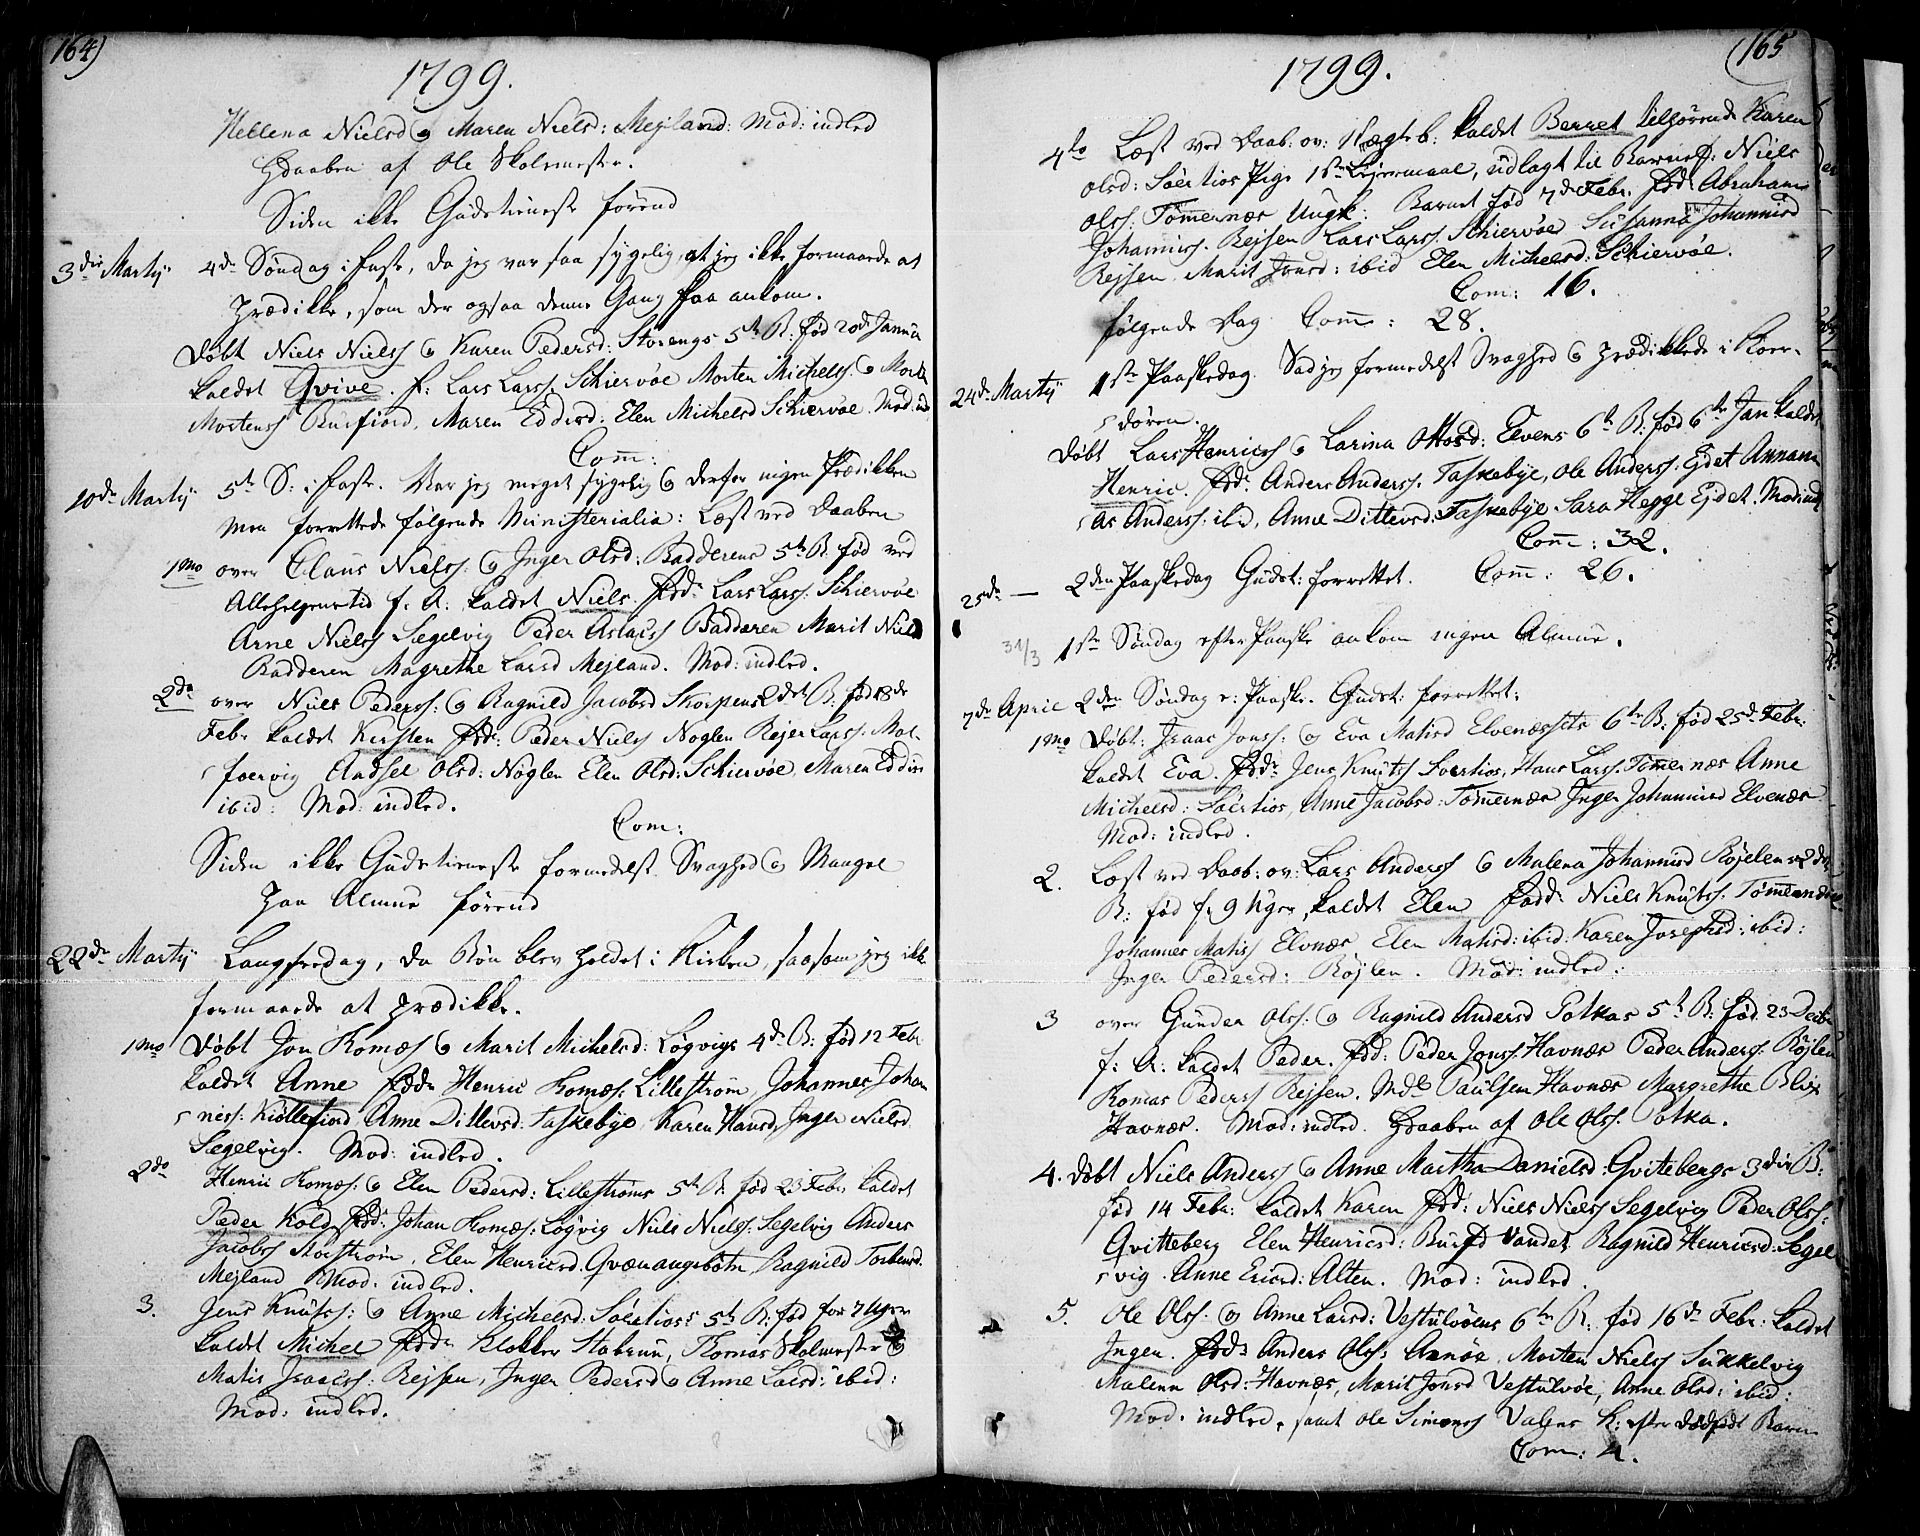 164)
1799.
Hellena Nielsd @ Maren Niels: Mejland: Mod: indled
Hdaaben af Ole Skolemester.
Siden ikke Gudstieneste førend
3die Martij 4de Søndag i faste, da jeg var saa sygelig, at jeg ikke formaaede at
prædikke, som der ogsaa denne Gang faa ankom.
døbt Niels Nielss @ Karen Pedersd: Storengs 5te B: fød 20de Januar
kaldet Qvive. f: Lars Larss. Schiervøe Morten Michelss. @ Morten
Mortenss Burfiord, Maren Eddisd: Elen Michelsd Schiervøe. Mod: ind
Com:
10de Martij 5te S: i faste. Var jeg meget sygelig @ derfor ingen Prædikken
men forrettede følgende Ministerialia: Læst ved Daaben
1mo over Claus Nielss: @ Inger Olsd: Badderens 5te B: fød ved
Allehelgenetid f. A: kaldet Niels. Fad: Lars Larss: Schiervøe
Arne Nielss Segelvig Peder Aslacss Badderen Marit Niels
Badderen Magrethe Larsd Mejland. Mod: indled.
2do over Niels Pederss: @ Ragnild Jacobsd Skorpens 2det B: fød 18de
Febr kaldet Kirsten Fad: Peder Nielss Noglen Rejer Larss: Mol-
foervig Audsel Olsd: Nøglen Elen Olsd: Schiervøe, Maren Eddis
ibid: Mod: indled.
Com:
Siden ikke Gudstieneste formedelst Svaghed @ Mangel
paa Almue førend
22de Martij Langfredag, da Bøn blev holdet i Kirken, saasom jeg ikke
formaaede at prædikke.
1mo Døbt Jon Thomæs @ Marit Michelsd: Løgvigs 4de B: fød 12 Febr.
kaldet Anne Fadd: Henric Thomæs: Lillestrøm, Johannes Johan
niss: Kiøllefiord Anne Ditlevsd: Taskebye Karen Hansd, Inger Nielsd
Segelvig. Mod: indled.
2do Henric Thomæs: @ Elen Pedersd: Lillestrøms 5te B: fød 23 Febr kaldet
Peder Kold, Fad: Johan Thomæs: Løgvig Niels Nielss: Segelvig Anders
Jacobss Storstrøm, Elen Henricsd. Qvænangsbotn, Ragnild Torbensd.
Mejland Mod: indled.
3. Jens Knutss: @ Anne Michelsd: Solitios: 5te B: fød for 7 Uger
kaldet Michel Fadd: Klokker Stabrun, Thomas Skolemester @
Matis Isaacss: Rejsen, Inger Pedersd @ Anne Larsd: ibid:
Mod: indled.
(165
1799.
4to Læst ved Daab: ov: 1 Uægte b: kaldet Berret tilhørende Karen
Olsd: Solitios Pige 1ste Lejermaal, udlagt til Barnef: Niels
Olss: Tømmernæs Ungk: Barnet fød 7de Febr. Fad: Abraham
Johanniss. Rejsen Lars Larss. Schiervøe Susanna Johannisd
Rejsen, Marit Jonsd: ibid Elen Michelsd: Schiervøe.
Com: 16.
følgende Dag Com: 28.
24de Martij 1ste Paaskedag. Sad jeg formedelst Svaghed @ prædikkede i Koer-
døren.
døbt Lars Henricss @ Larina Ottosd: Elvens 6te B: fød 6te Jan kaldet
Henric. Fad: Anders Anderss. Taskebye, Ole Anderss. Ejdet Annani
as Anderss: ibid, Anne Ditlevsd: Taskebye Sara Hegge Ejdet. Mod: ind
Com: 32.
25de — 2den Paaskedag Gudst: forrettet. Com: 26.
31/3 1ste Søndag efter Paaske ankom ingen Almue.
7de April 2den Søndag e: Paaske. Gudst: forrettet:
1mo Døbt: Isaac Jonss: @ Eva Matisd Elvenæssets 6te B: fød 25de Febr:
kaldet Eva. Fad: Jens Knutss Soertios, Hans Larss. Tømernæs Anne
Michelsd: Solitios, Anne Jacobsd: Tømernæs Inger Johannisd Elvenæs
Mod: indled.
2. Læst ved Daab: ov: Lars Anderss @ Malena Johannisd Røjelens 2det
B: fød f. 9 Uger, kaldet Elen Fadd: Niels Knutss. Tømmernæs
Johannes Matiss Elvnæs Elen Matisd: ibid: Karen Josephsd: ibid:
Inger Pedersd: Røjlen. Mod: indled:
3 over Gunder Olss: @ Ragnild Andersd Potkas 5te B: fød 23 Decbr
f: A: kaldet Peder. Fad: Peder Jonss. Havnæs Peder Anderss. Røjlen
Thomas Pederss Rejsen. Mdle Paulsen Havnæs Margrethe Blix
Havnæs. Mod: indled. Hdaaben af Ole Olss. Potka.
4. døbt Niels Anderss @ Anne Martha Danielsd: Qvitebergs 3die B:
fød 14 Febr: kaldet Karen Fad: Niels Nielss Segelvig Peder Olss:
Qvitteberg Elen Henricsd: Burfd Vandet Ragnild Henricsd: Segel
vig. Anne Ericsd: Alten. Mod: indled.
5. Ole Olss: @ Anne Larsd: Vestulvøens 6te B: fød 16de Febr: kaldet
Ingen. Fad: Anders Olss: Arnøe, Morten Nielss Sukkelvig
Malenn Olsd: Havnæs, Marit Jonsd Vestulvøe, Anne Olsd: ibid:
Mod: indled, samt Ole Simenss Valens K: efter dødfødt Barn
Com: 4.